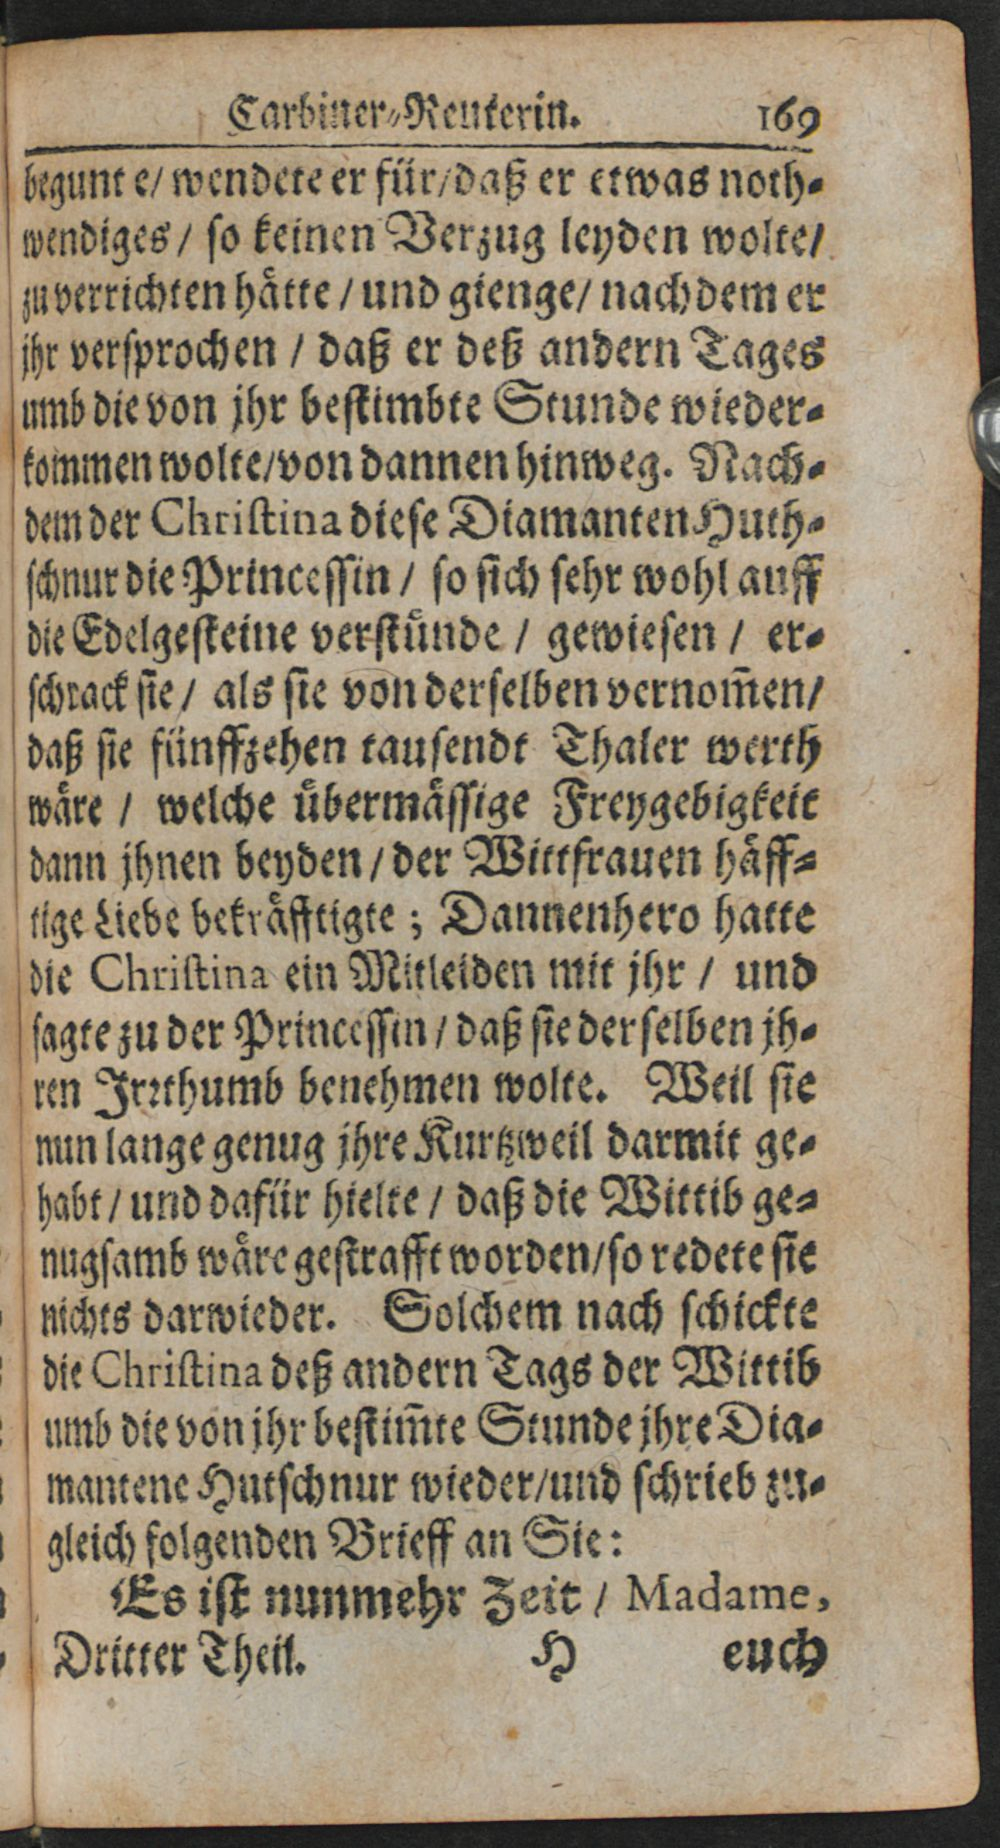 Carbiner-Reuterin. 169
begunte/ wendete er für/ daß er etwas noth-
wendiges / so keinen Verzug leyden wolte/
zu verrichten hätte / und gienge/ nachdem er
jhr versprochen / daß er deß andern Tages
umb die von jhr bestimbte Stunde wieder-
kommen wolte/ von dannen hinweg. Nach-
dem der Christina diese Diamanten Huth-
schnur die Princessin / so sich sehr wohl auff
die Edelgesteine verstünde / gewiesen / er-
schrack sie / als sie von derselben vernom̃en/
daß sie fünffzehen tausendt Thaler werth
wäre / welche übermässige Freygebigkeit
dann jhnen beyden / der Wittfrauen häff-
tige Liebe bekräfftigte ; Dannenhero hatte
die Christina ein Mitleiden mit jhr / und
sagte zu der Princessin / daß sie derselben jh-
ren Jrꝛthumb benehmen wolte. Weil sie
nun lange genug jhre Kurtzweil darmit ge-
habt / und dafür hielte / daß die Wittib ge-
nugsamb wäre gestrafft worden/ so redete sie
nichts darwieder. Solchem nach schickte
die Christina deß andern Tags der Wittib
umb die von jhr bestim̃te Stunde jhre Dia-
mantene Hutschnur wieder/ und schrieb zu-
gleich folgenden Brieff an Sie:
Es ist nunmehr Zeit / Madame,
Dritter Theil. H euch